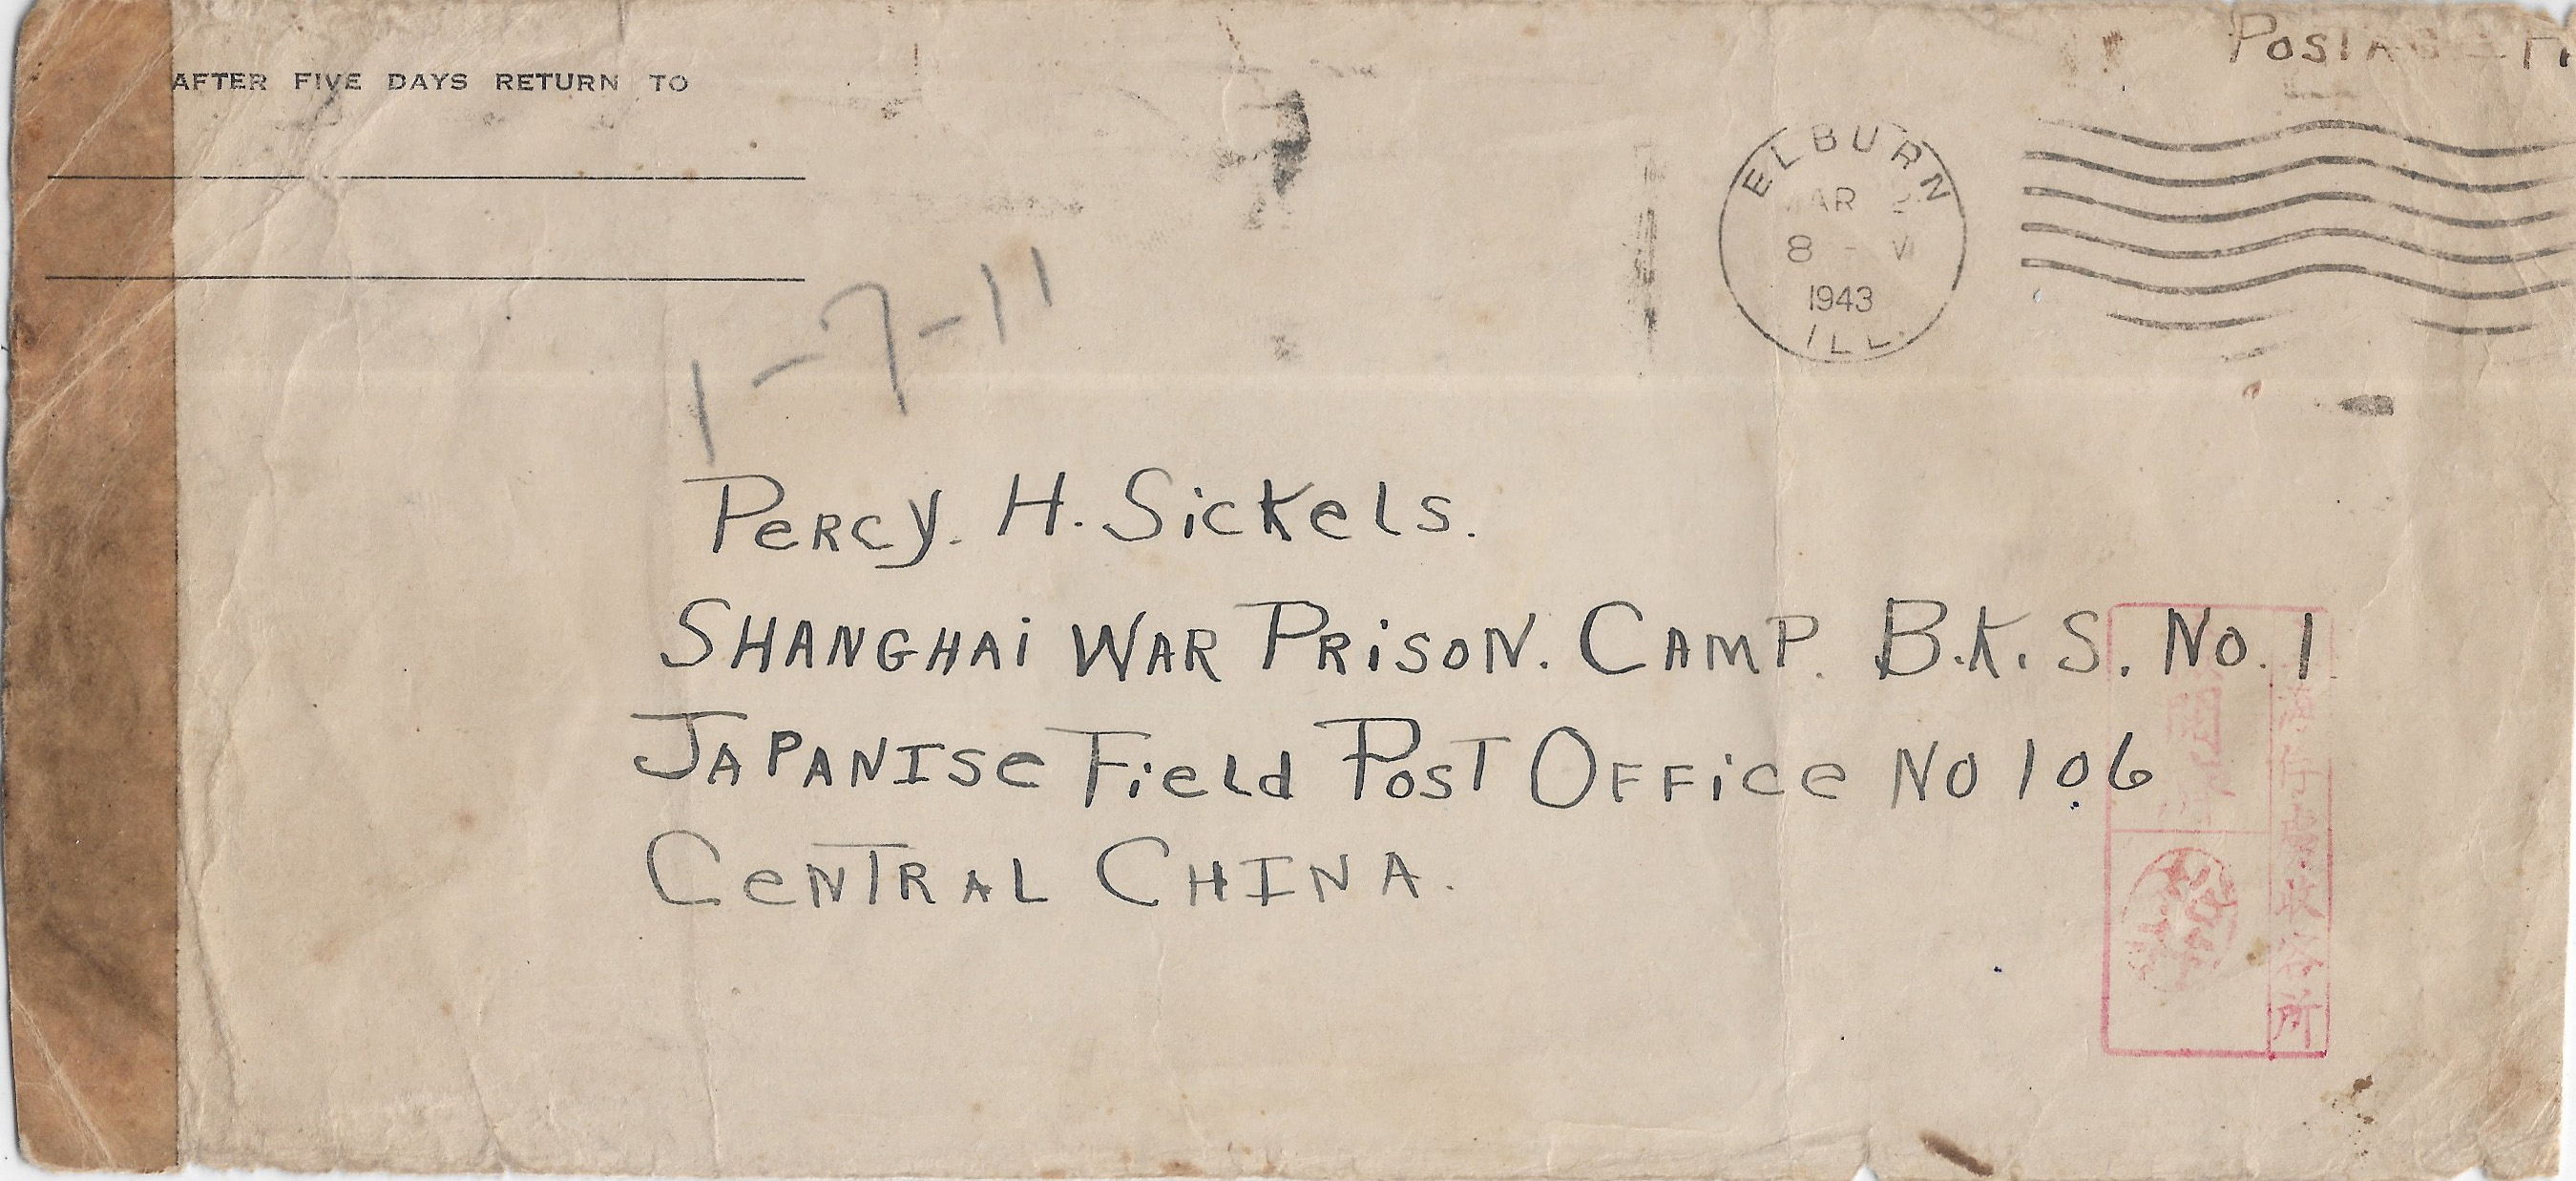 AFTER FIVE DAYS RETURN TO
ELBURN
8
1943
ILL.
1-7-11
Percy. H. Sickels.
SHANGHAi WAR PRiSON. CAMP. B.K.S. No. 1
JAPANISe Field Post OFFice No 106
CeNTRAL CHINA.
所